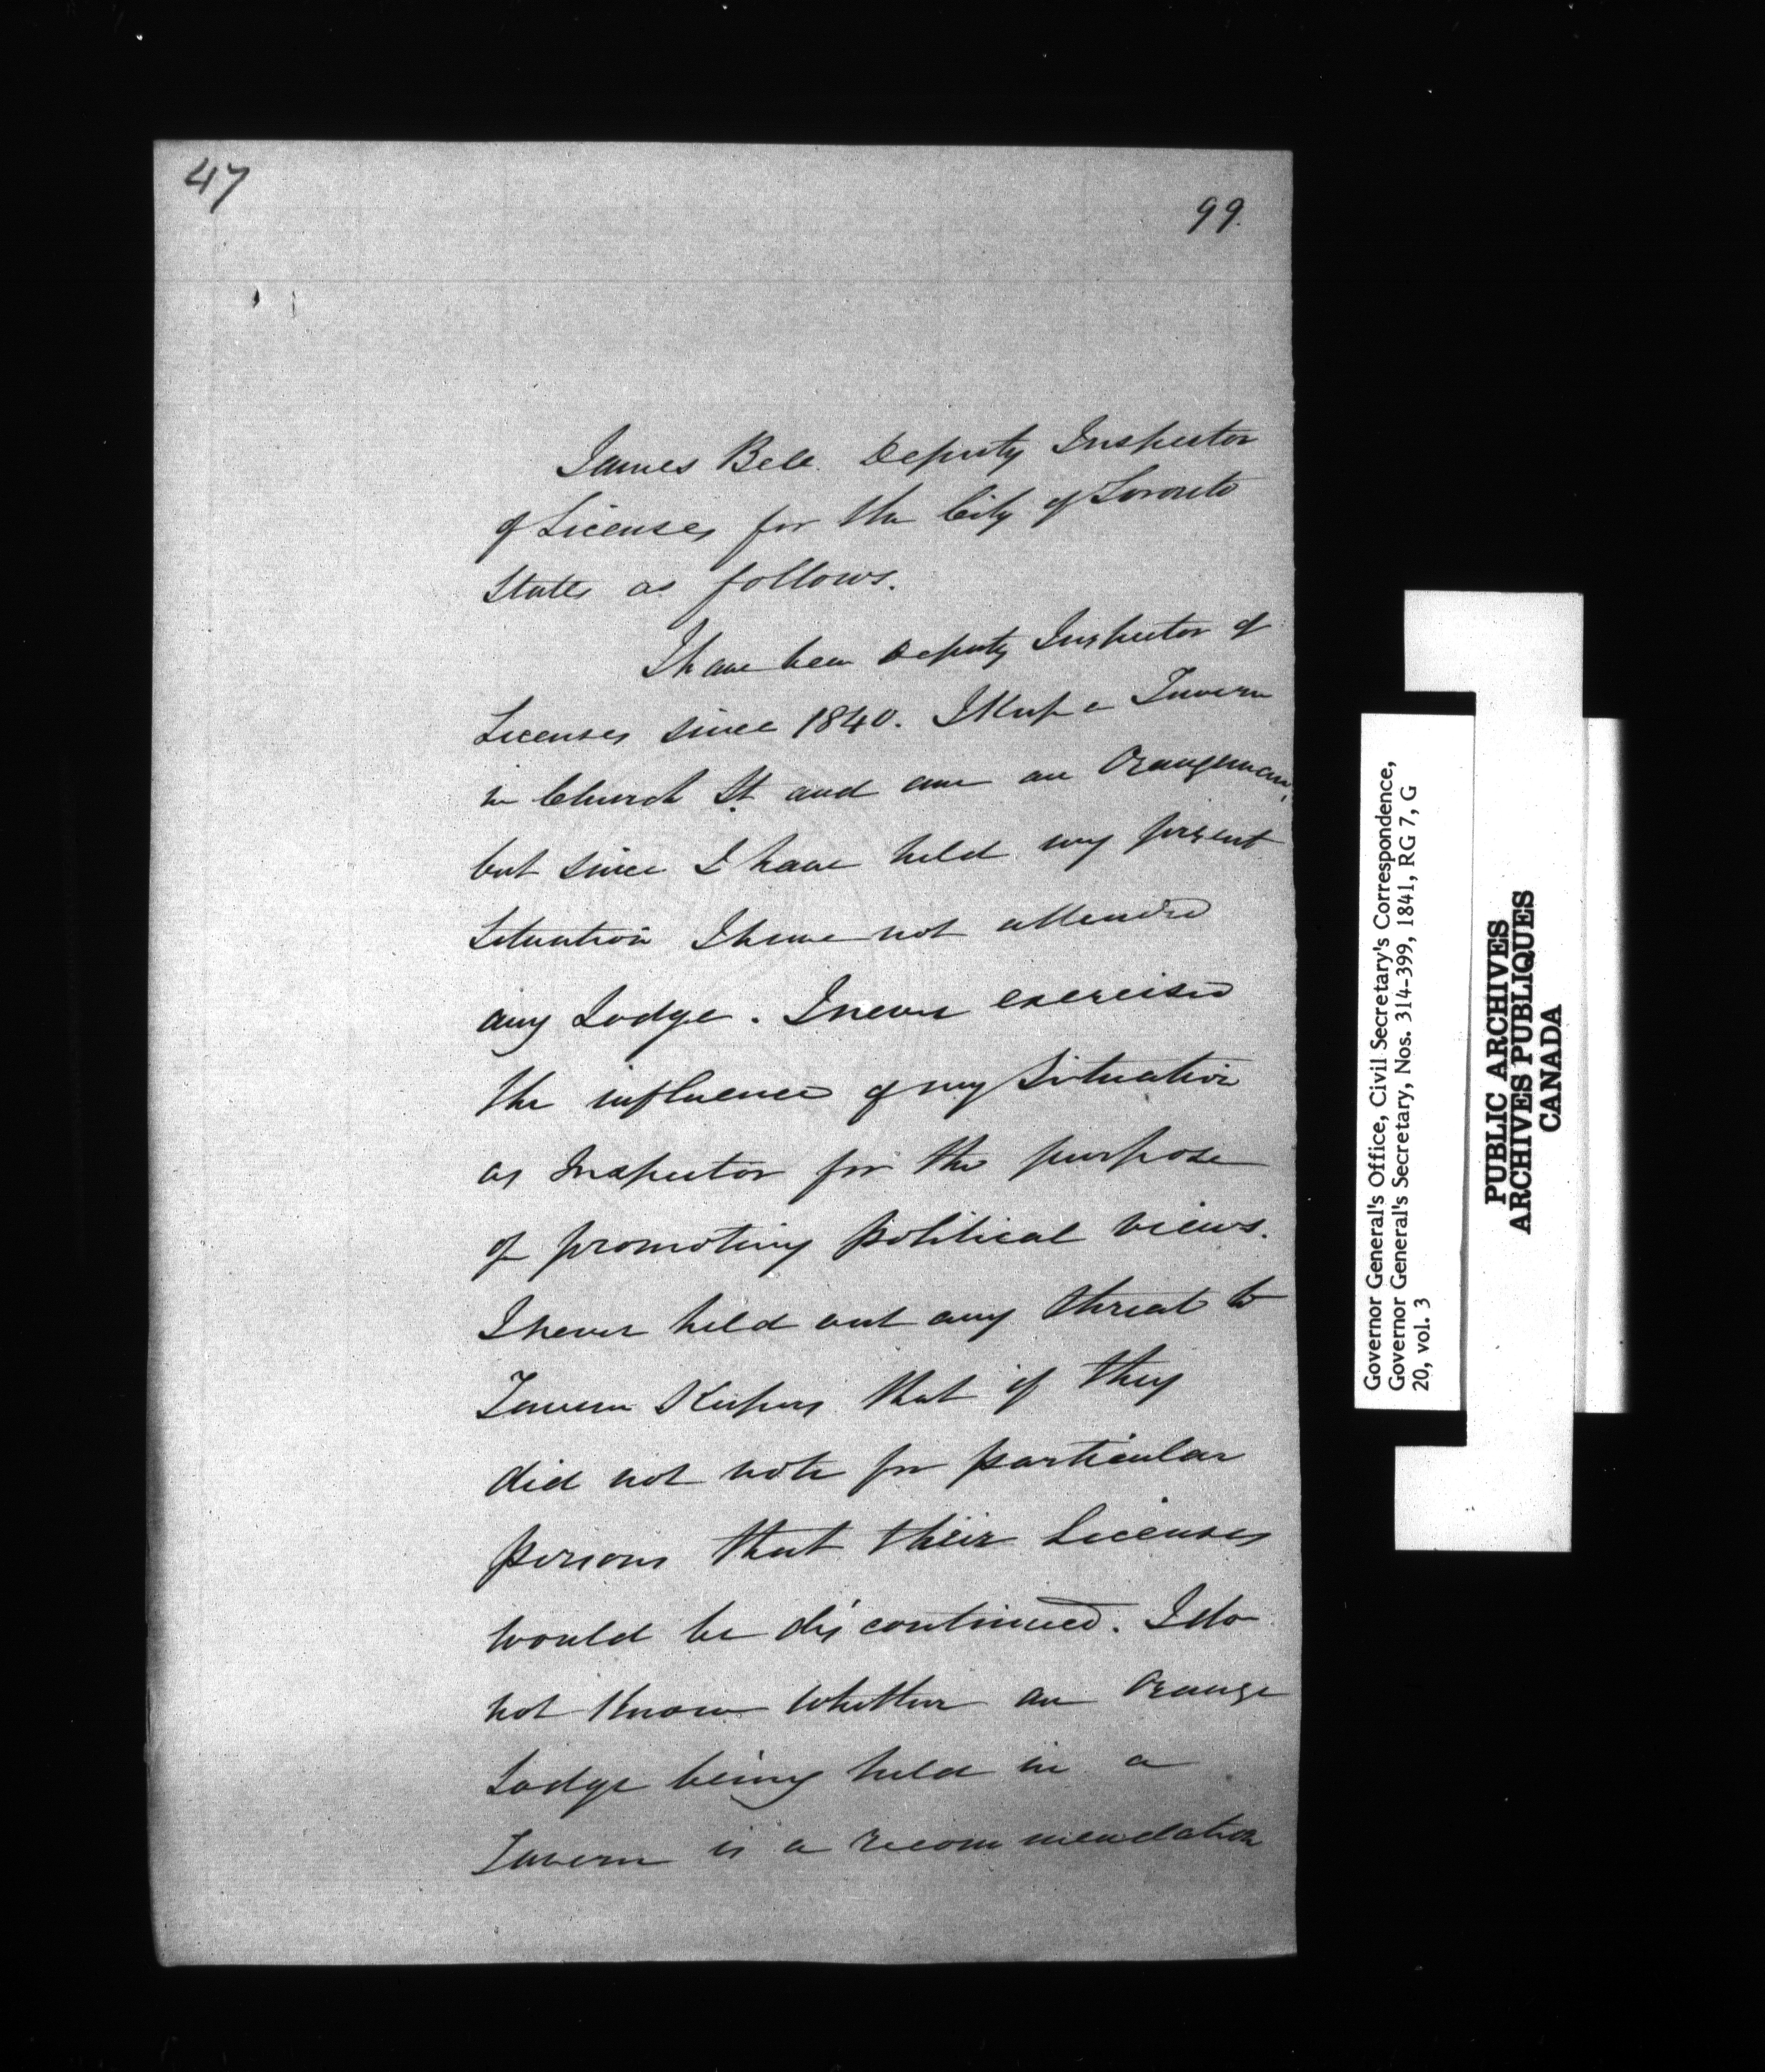 47
99.
James Bell Deputy Inspector
of Licenses for the City of Toronto
States as follows.
I have been Deputy Inspector of
Licenses since 1840. I Keep a Tavern
in Church St. and am an Orangeman,
but since I have held my present
Situation I have not attended
any Lodge. I never exercised
the influence of my Situation
as Inspector for the purpose
of promoting political views.
I never held out any threat to
Tavern Keepers that if they
did not vote for particular
persons that their Licenses
would be discontinued. I do
not Know whether an Orange
Lodge being held in a
Tavern is a recommendation
Governor General's Office, Civil Secretary's Correspondence,
Governor General's Secretary, Nos. 314-399, 1841, RG 7, G
20, vol. 3
PUBLIC ARCHIVES
ARCHIVES PUBLIQUES
CANADA